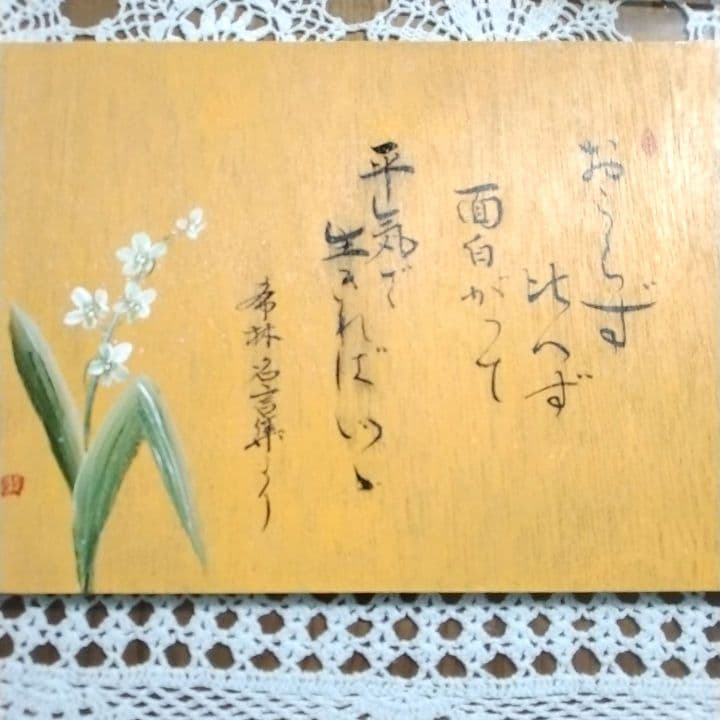 おごらず
比べず
面白がって
平気で
生きればいい
希林名言集より